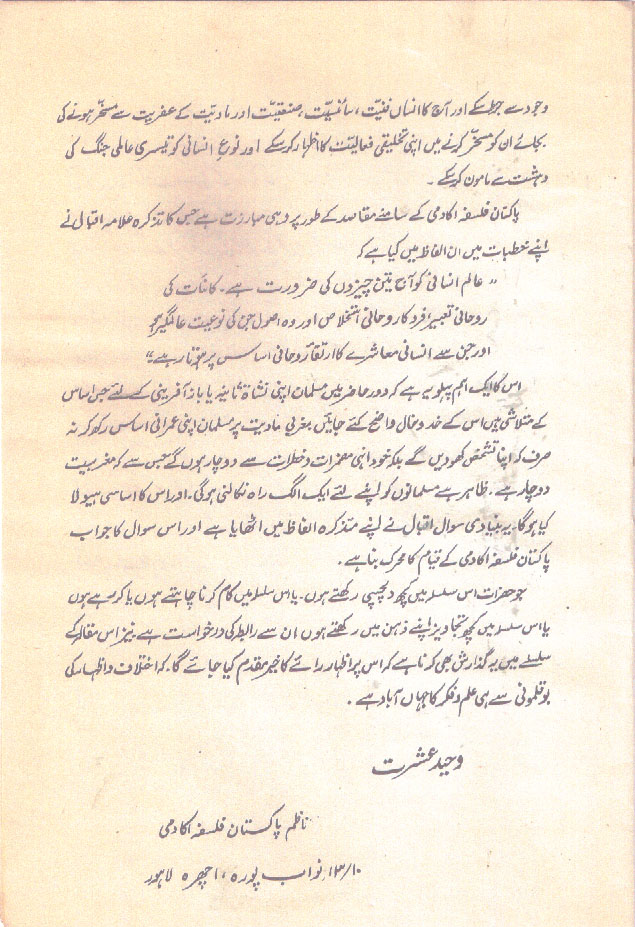 وجود سے جڑ سکے اور آج کا انسان فنیّت، سائنسیّت، صنعتیّت اور مادیت کے عفریت سے مسخّر ہونے کی
بجائے ان کو مسخّر کرنے میں اپنی تخلیقی فعالیّت کا اظہار کر سکے اور نوعِ انسانی کو تیسری عالمی جنگ کی
دہشت سے مامون کر سکے۔
پاکستان فلسفہ اکادمی کے سامنے مقاصد کے طور پر وہی مبارزت ہے جس کا تذکرہ علامہ اقبال نے
اپنے خطبات میں ان الفاظ میں کیا ہے کہ
" عالم انسانی کو آج تین چیزوں کی ضرورت ہے۔ کائنات کی
روحانی تعبیر، فرد کا روحانی استخلاص اور وہ اصول جن کی نوعیت عالمگیر ہو
اور جن سے انسانی معاشرے کا ارتقأ روحانی اساس پر ہوتا رہے"
اس کا ایک اہم پہلو یہ ہے کہ دورِ حاضر میں مسلمان اپنی نشاۃ ثانیہ یا باز آفرینی کے لئے جس اساس
کے متلاشی ہیں اس کے خد و خال واضح کئے جائیں مغربی مادیت پر مسلمان اپنی عمرانی اساس رکھ کر نہ
صرف کہ اپنا تشخص کھو دیں گے بلکہ خود انہی مضمرات و خطرات سے دوچار ہوں گے جس سے کہ مغربیت
دوچار ہے۔ ظاہر ہے مسلمانوں کو اپنے لئے ایک الگ راہ نکالنی ہوگی۔ اور اس کا اساسی ہیولا
کیا ہوگا۔ یہ بنیادی سوال اقبال نے اپنے متذکرہ الفاظ میں اٹھایا ہے اور اس سوال کا جواب
پاکستان فلسفہ اکادمی کے قیام کا محرک بنا ہے۔
جو حضرات اس سلسلہ میں کچھ دلچسپی رکھتے ہوں۔ یا اس سلسلہ میں کام کرنا چاہتے ہوں یا کر رہے ہوں
یا اس سلسلہ میں کچھ تجاویز اپنے ذہن میں رکھتے ہوں ان سے رابطہ کی درخواست ہے۔ نیز اس مقالہ کے
سلسلے میں یہ گذارش بھی کرنا ہے کہ اس پر اظہار رائے کا خیر مقدم کیا جائے گا۔ کہ اختلاف و اظہار کی
بوقلمونی سے ہی علم و فکر کا جہاں آباد ہے۔
وحید عشرت
ناظم پاکستان فلسفہ اکادمی
۱۳/۱۰، نواب پورہ، اچھرہ لاہور